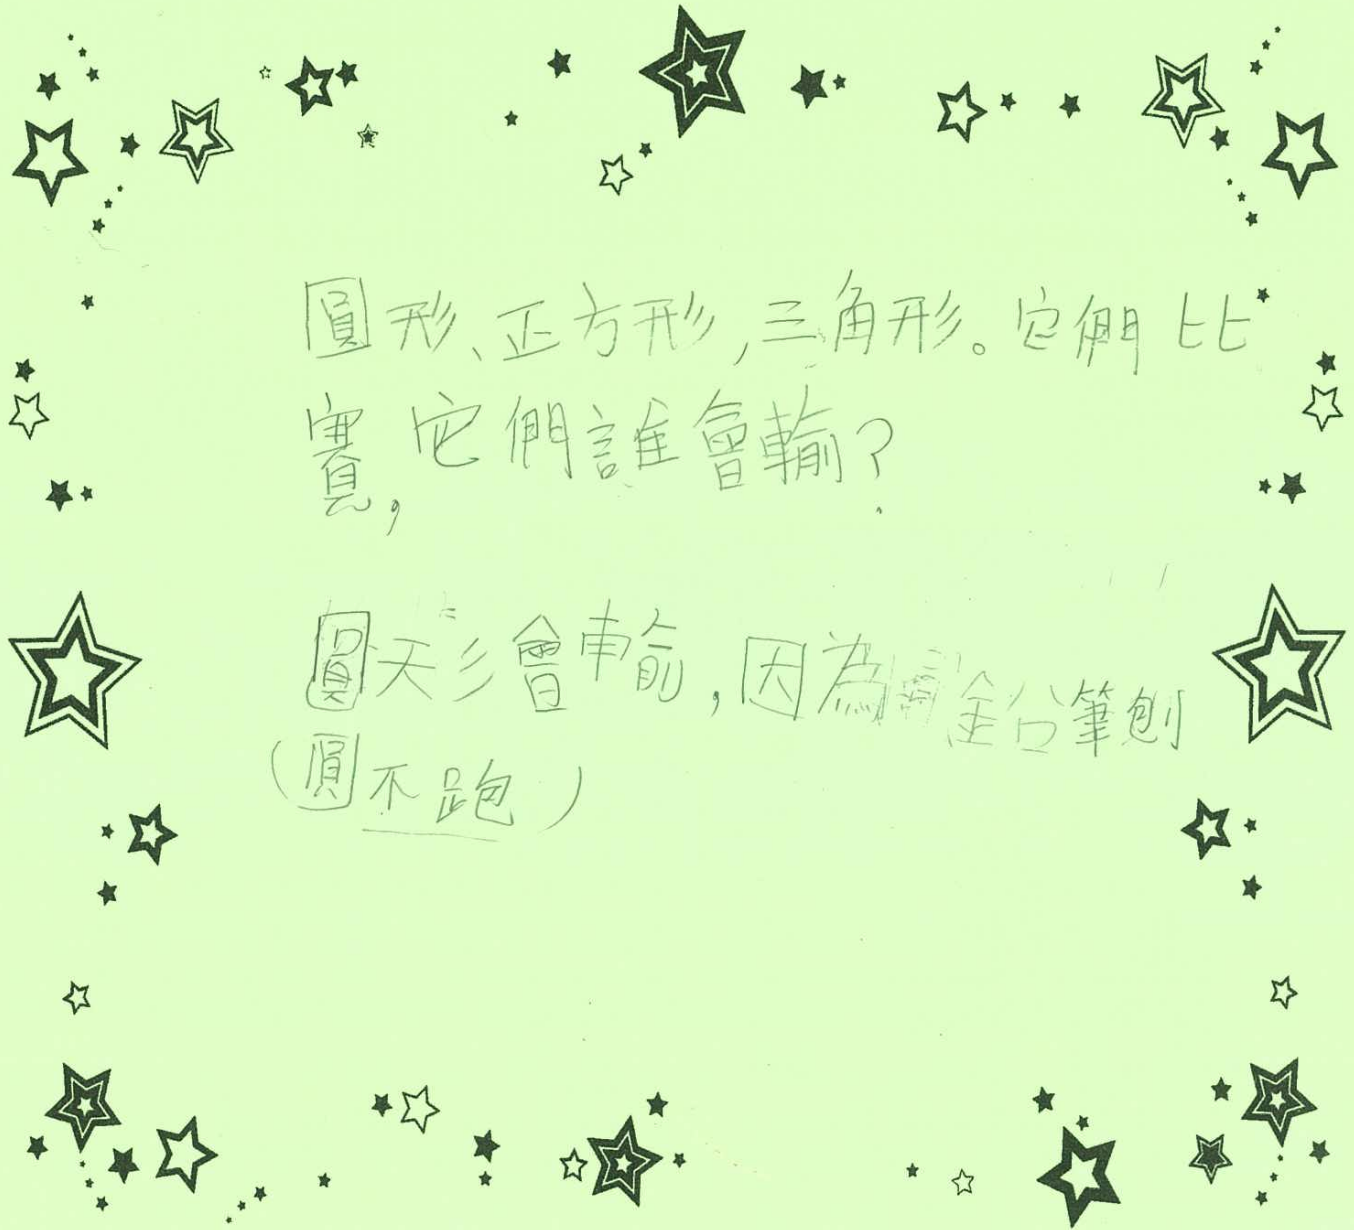 圓形、正方形,三角形。它們比
賽,它們誰會輸?
圓形會輸,因為鉛筆刨
(圓不跑)